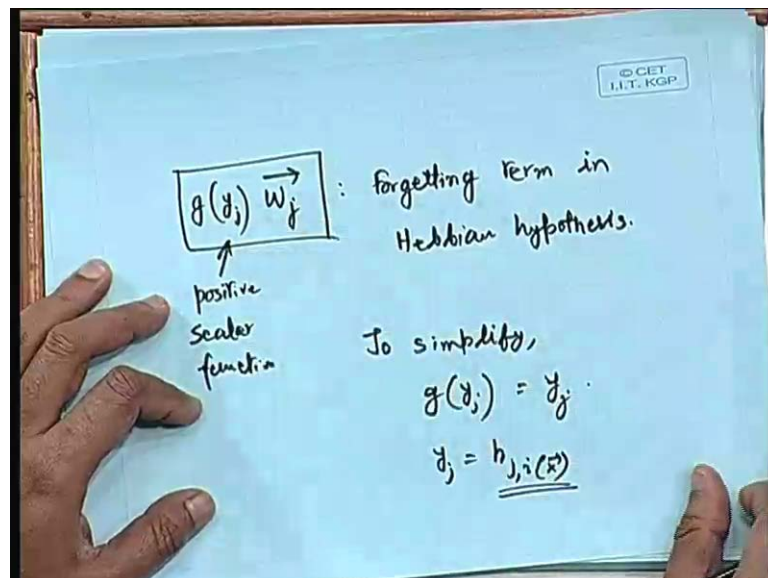 © CET
I.I.T. KGP
g(y_j) \vec{w_j} : Forgetting term in
Hebbian hypothesis.
positive
scalar
function
To simplify,
g(y_j) = y_j .
y_j = h_{j,i(\vec{x})}